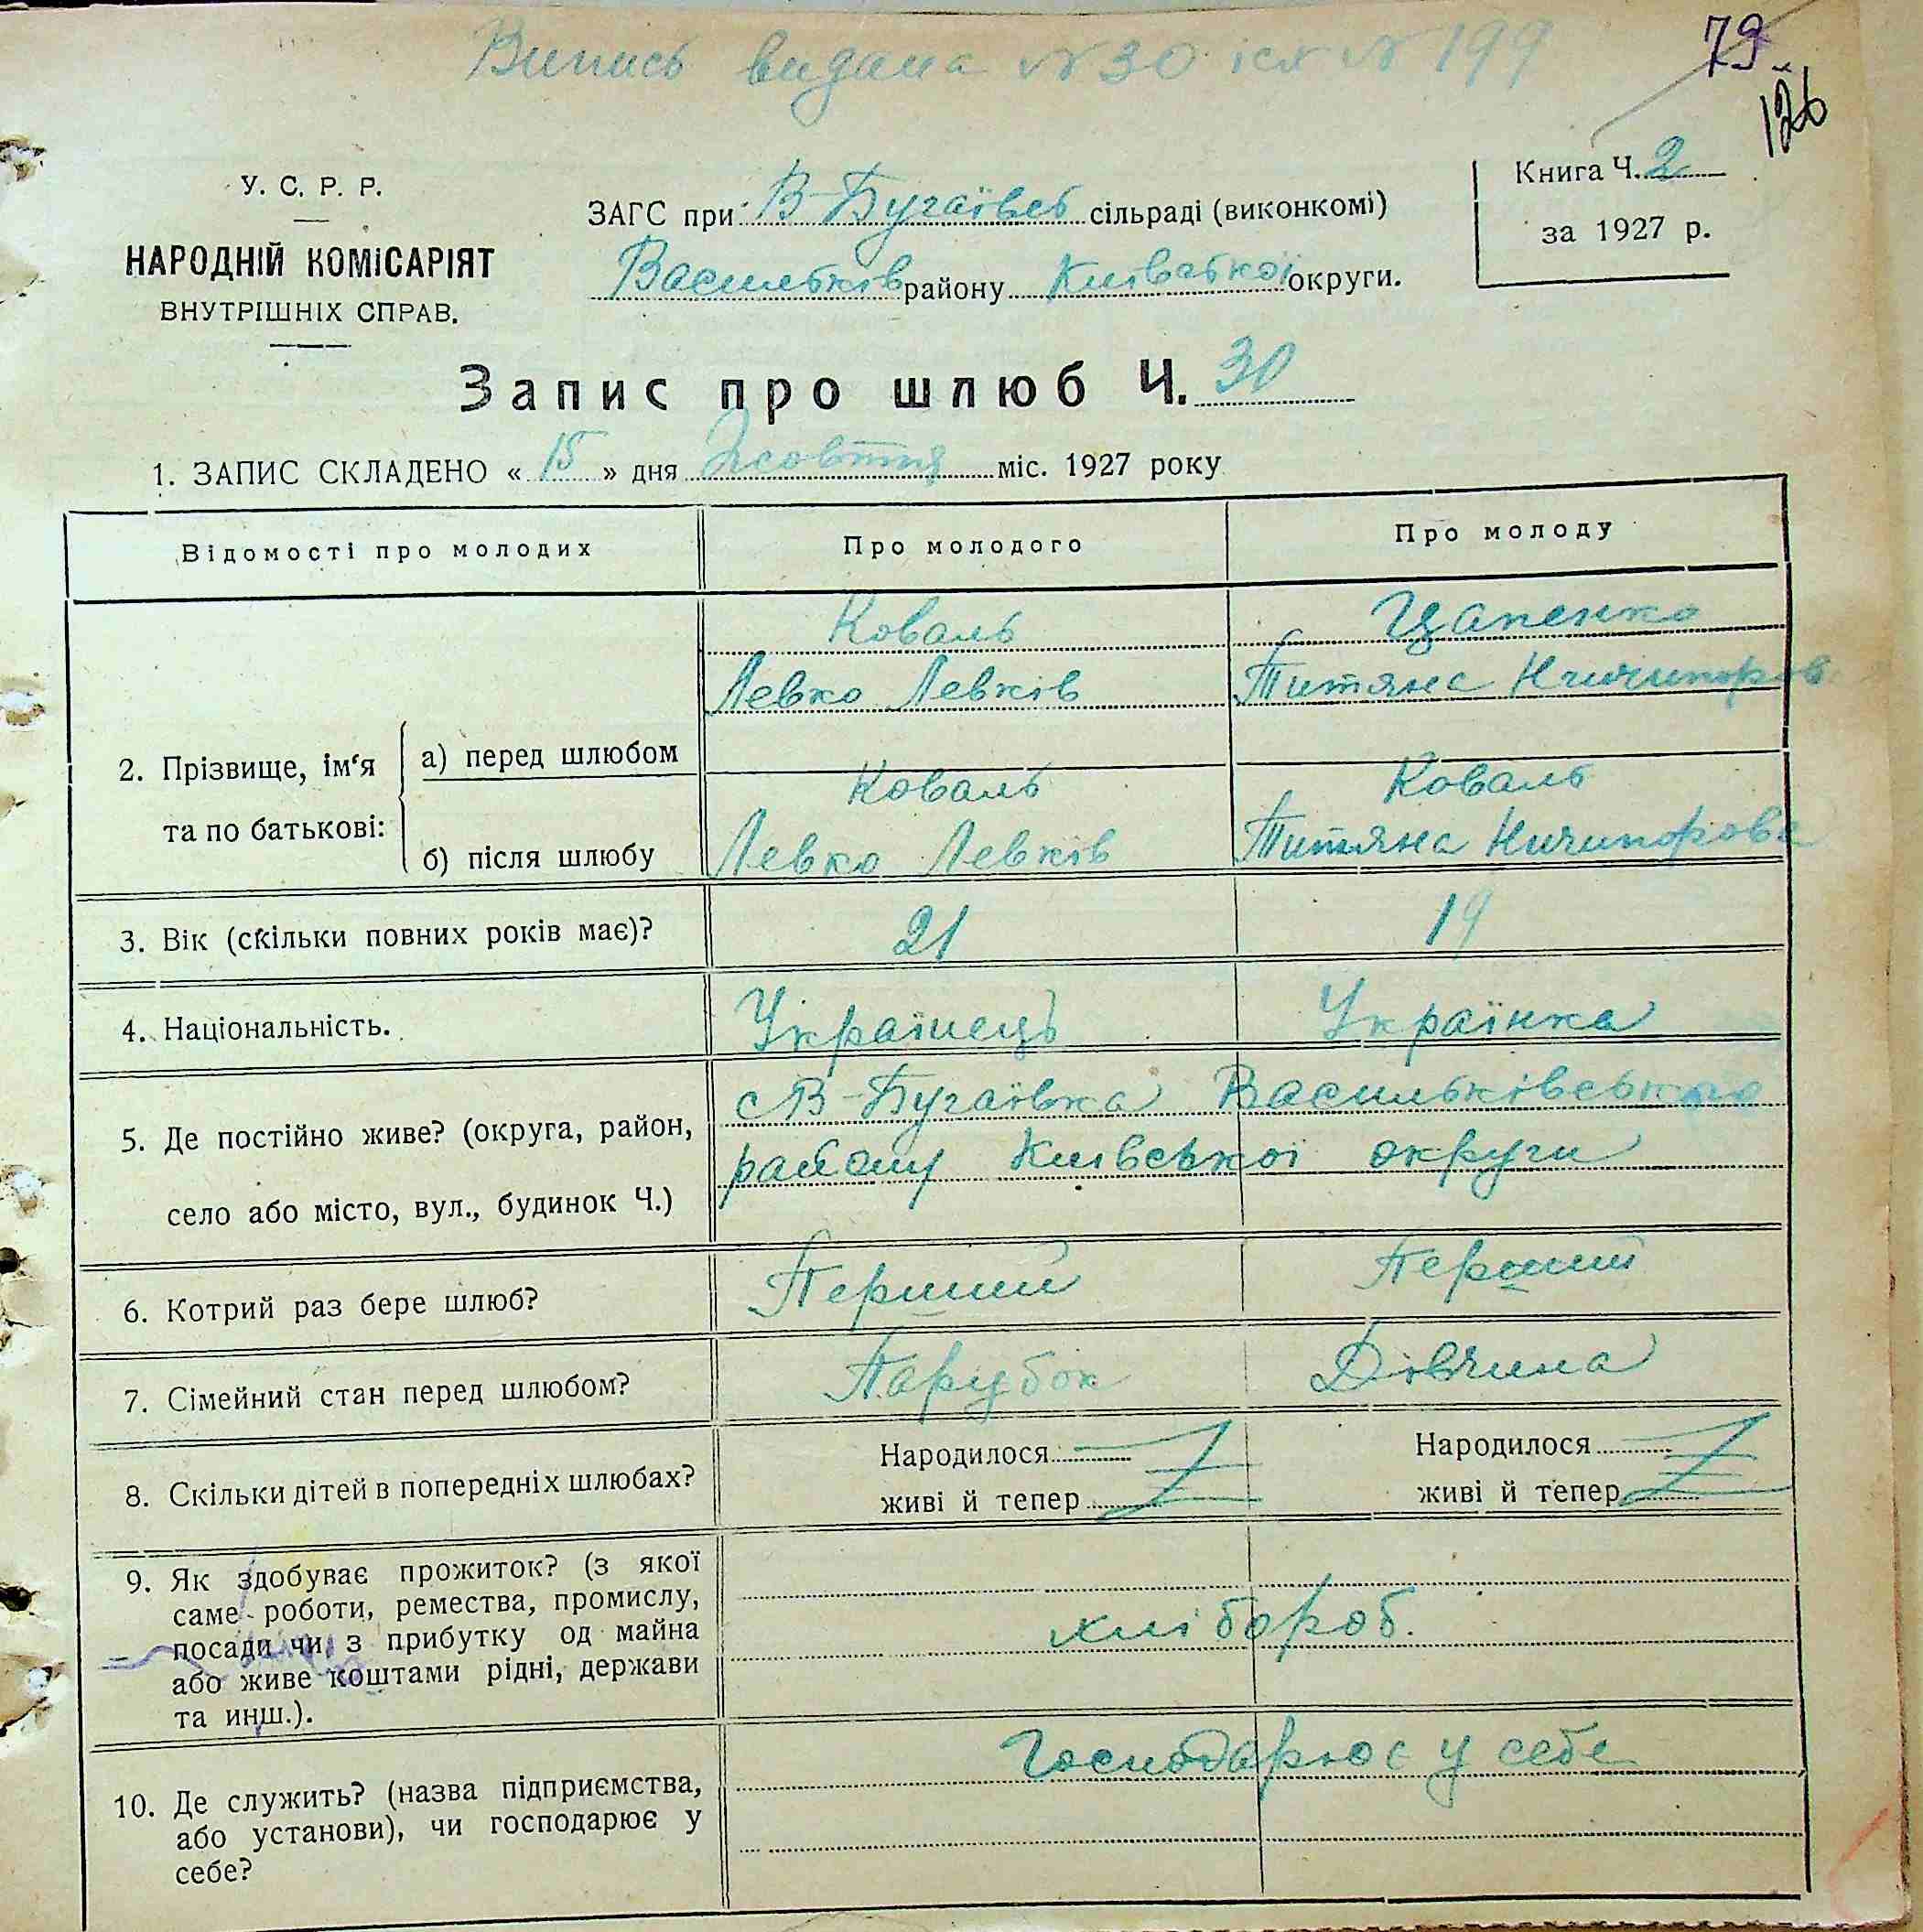 Випись видана № 30 № 199
79
126
У. С. Р. Р.
НАРОДНІЙ КОМІСАРІЯТ
ВНУТРІШНІХ СПРАВ.
ЗАГС при В-Бугаївсь сільраді (виконкомі)
Васильків району Київської округи.
Книга Ч. 2
за 1927 р.
Запис про шлюб Ч. 30
1. ЗАПИС СКЛАДЕНО « 15 » дня Жовтня міс. 1927 року
Відомості про молодих
Про молодого
Про молоду
2. Прізвище, ім'я та по батькові:
а) перед шлюбом
Коваль
Левко Левків
Цапенко
Титяна Ничипоров
б) після шлюбу
Коваль
Левко Левків
Коваль
Титяна Ничипорова
3. Вік (скільки повних років має)?
21
19
4. Національність.
Українець
Українка
5. Де постійно живе? (округа, район,
село або місто, вул., будинок Ч.)
с В-Бугаївка Васильківського
району Київської округи
6. Котрий раз бере шлюб?
Перший
Перший
7. Сімейний стан перед шлюбом?
Парубок
Дівчина
8. Скільки дітей в попередніх шлюбах?
Народилося
живі й тепер
Народилося
живі й тепер
9. Як здобуває прожиток? (з якої
саме роботи, ремества, промислу,
посади чи з прибутку од майна
або живе коштами рідні, держави
та инш.).
хлібороб.
10. Де служить? (назва підприємства,
або установи), чи господарює у
себе?
Господарює у себе